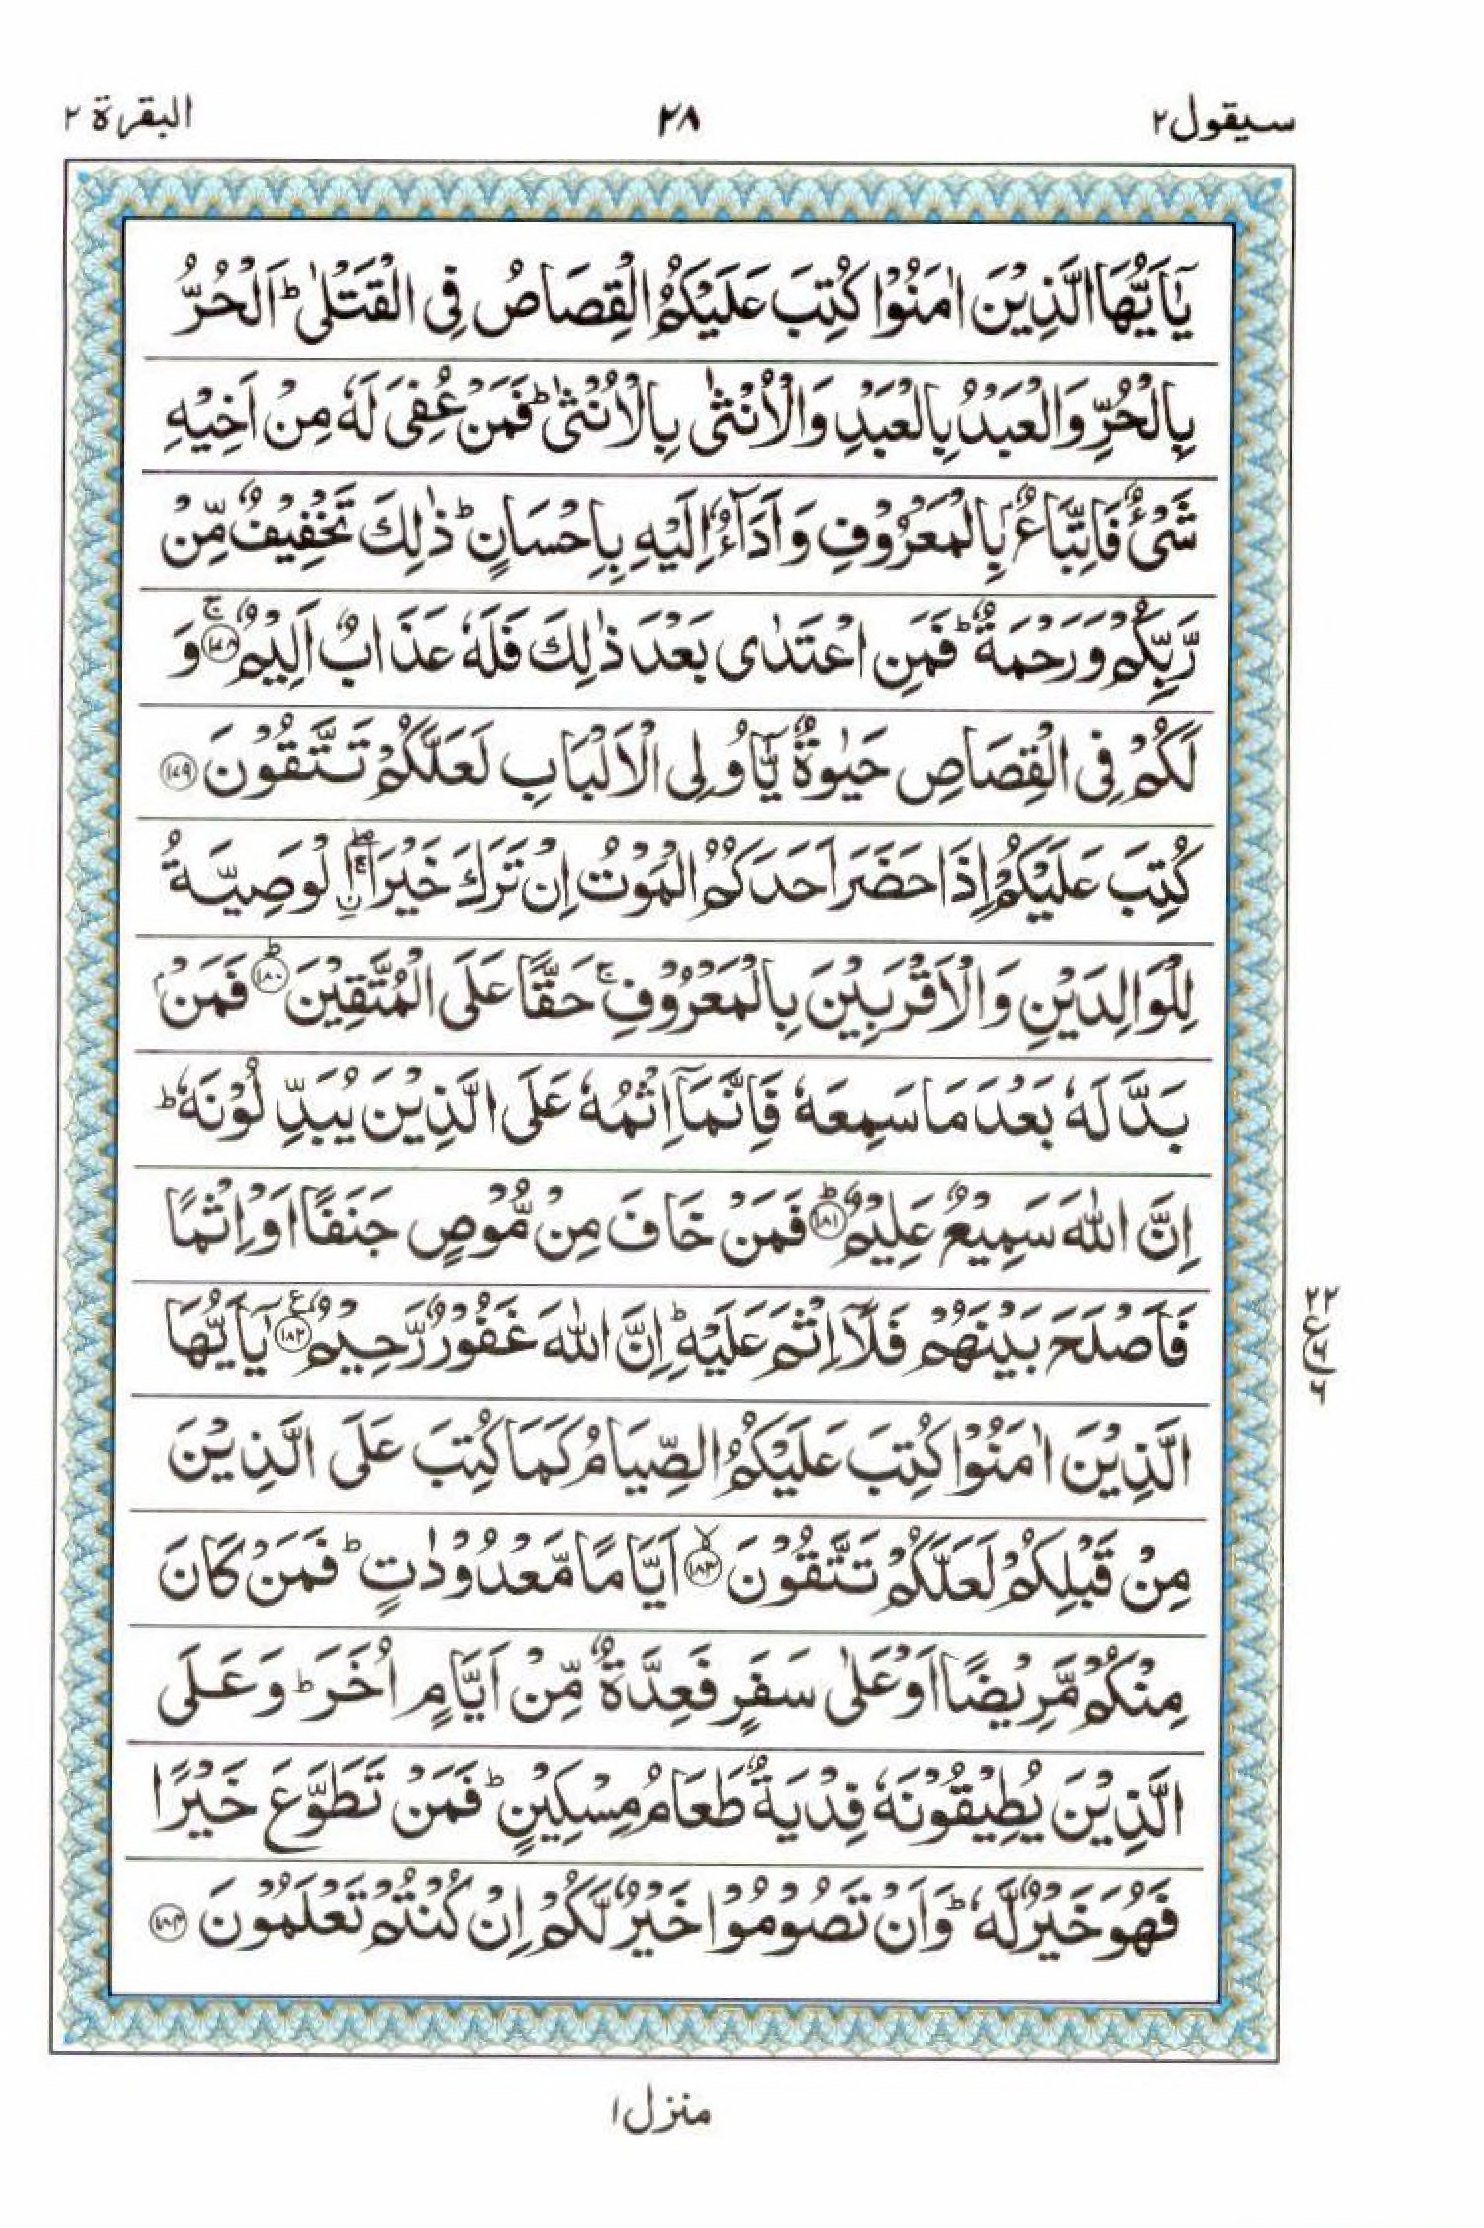 سيقول ٢
٢٨
البقرة ٢
يٰٓاَيُّهَا الَّذِيْنَ اٰمَنُوْا كُتِبَ عَلَيْكُمُ الْقِصَاصُ فِى الْقَتْلٰىؕ اَلْحُرُّ
بِالْحُرِّ وَالْعَبْدُ بِالْعَبْدِ وَالْاُنْثٰى بِالْاُنْثٰىؕ فَمَنْ عُفِىَ لَهٗ مِنْ اَخِيْهِ
شَىْءٌ فَاتِّبَاعٌۢ بِالْمَعْرُوْفِ وَاَدَآءٌ اِلَيْهِ بِاِحْسَانٍؕ ذٰلِكَ تَخْفِيْفٌ مِّنْ
رَّبِّكُمْ وَرَحْمَةٌؕ فَمَنِ اعْتَدٰى بَعْدَ ذٰلِكَ فَلَهٗ عَذَابٌ اَلِيْمٌۚ ﴿١٧٨﴾ وَ
لَكُمْ فِى الْقِصَاصِ حَيٰوةٌ يّٰٓاُولِى الْاَلْبَابِ لَعَلَّكُمْ تَتَّقُوْنَ ﴿١٧٩﴾
كُتِبَ عَلَيْكُمْ اِذَا حَضَرَ اَحَدَكُمُ الْمَوْتُ اِنْ تَرَكَ خَيْرَا ۖۚ ۨالْوَصِيَّةُ
لِلْوَالِدَيْنِ وَالْاَقْرَبِيْنَ بِالْمَعْرُوْفِۚ حَقًّا عَلَى الْمُتَّقِيْنَؕ ﴿١٨٠﴾ فَمَنْۢ
بَدَّلَهٗ بَعْدَ مَا سَمِعَهٗ فَاِنَّمَآ اِثْمُهٗ عَلَى الَّذِيْنَ يُبَدِّلُوْنَهٗؕ
اِنَّ اللّٰهَ سَمِيْعٌ عَلِيْمٌؕ ﴿١٨١﴾ فَمَنْ خَافَ مِنْ مُّوْصٍ جَنَفًا اَوْ اِثْمًا
فَاَصْلَحَ بَيْنَهُمْ فَلَآ اِثْمَ عَلَيْهِؕ اِنَّ اللّٰهَ غَفُوْرٌ رَّحِيْمٌ ﴿١٨٢﴾ يٰٓاَيُّهَا
٢٢
ع
٦
٦
الَّذِيْنَ اٰمَنُوْا كُتِبَ عَلَيْكُمُ الصِّيَامُ كَمَا كُتِبَ عَلَى الَّذِيْنَ
مِنْ قَبْلِكُمْ لَعَلَّكُمْ تَتَّقُوْنَۙ ﴿١٨٣﴾ اَيَّامًا مَّعْدُوْدٰتٍؕ فَمَنْ كَانَ
مِنْكُمْ مَّرِيْضًا اَوْ عَلٰى سَفَرٍ فَعِدَّةٌ مِّنْ اَيَّامٍ اُخَرَؕ وَعَلَى
الَّذِيْنَ يُطِيْقُوْنَهٗ فِدْيَةٌ طَعَامُ مِسْكِيْنٍؕ فَمَنْ تَطَوَّعَ خَيْرًا
فَهُوَ خَيْرٌ لَّهٗؕ وَاَنْ تَصُوْمُوْا خَيْرٌ لَّكُمْ اِنْ كُنْتُمْ تَعْلَمُوْنَ ﴿١٨٤﴾
منزل ١